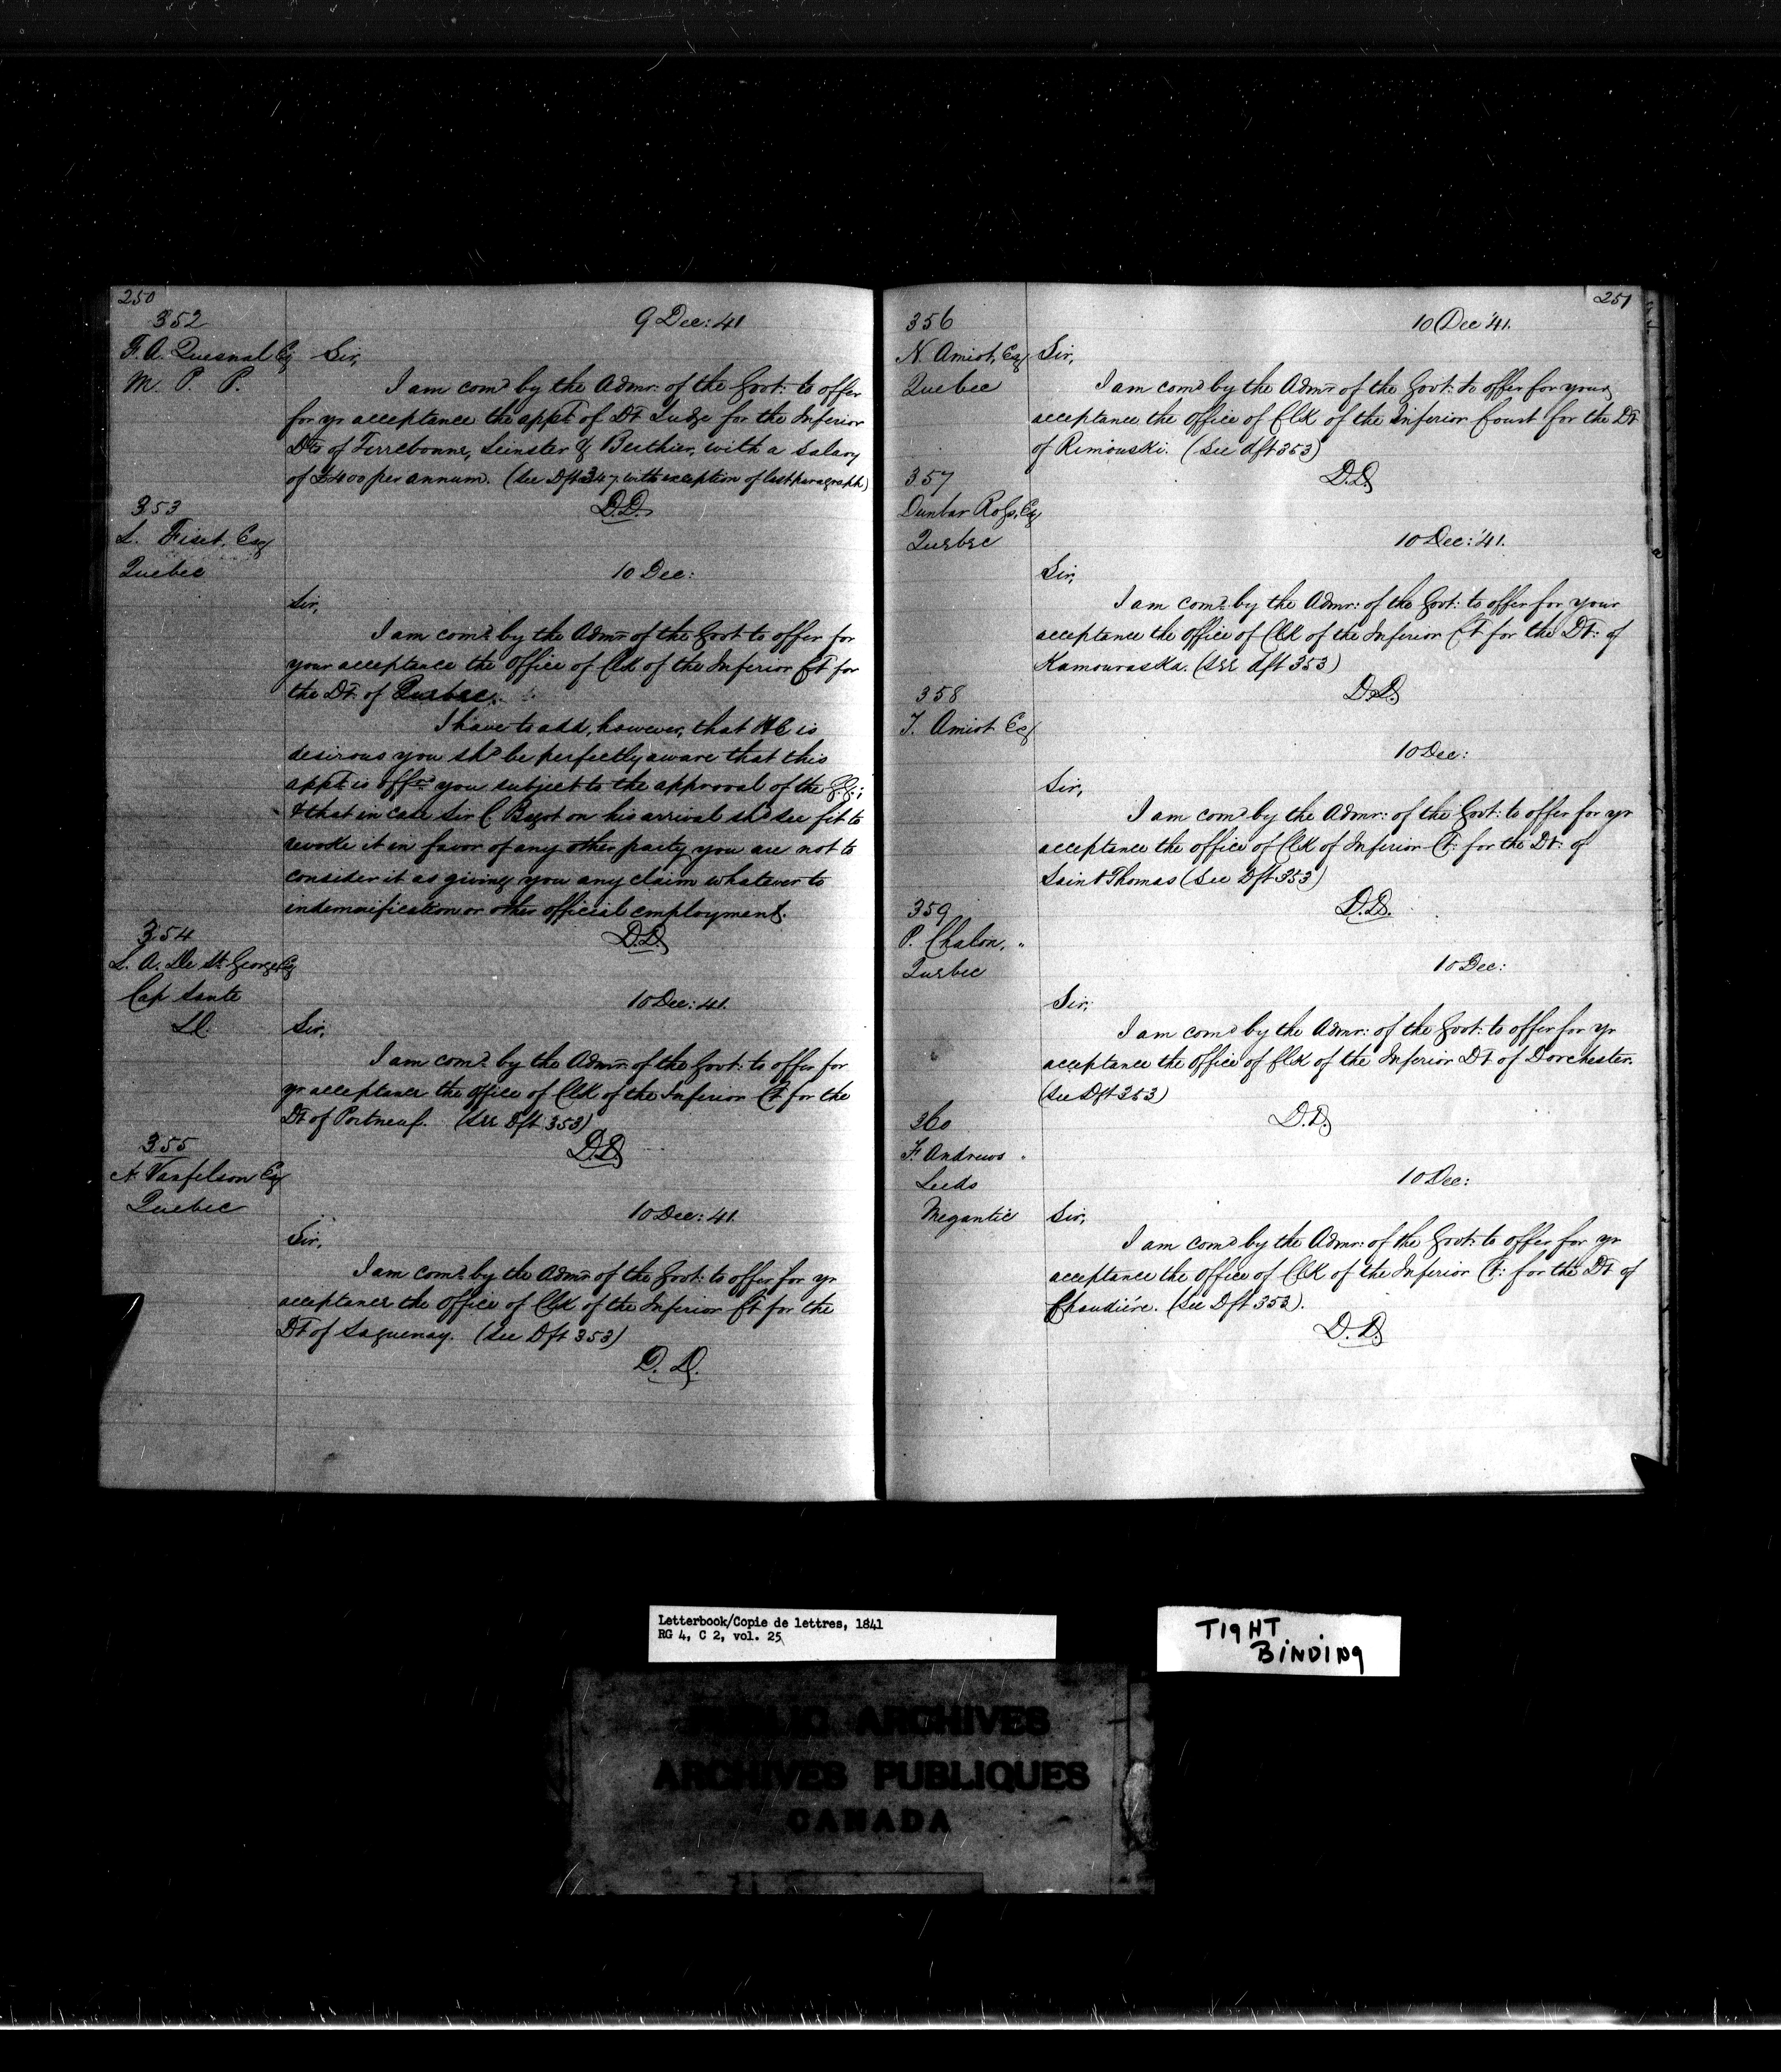 250
352
9 Dec: 41
F. A. Quesnal Esq
M. P. P.
Sir,
I am comd by the Admr: of the Govt: to offer
for yr acceptance the appt of Dt Judge for the Inferior
Dts of Terrebonne, Leinster & Berthier, with a salary
of £400 per annum. (See Dft 347 with exception of last paragraph)
D.D.
353
L. Fiset, Esq
Quebec
10 Dec:
Sir,
I am comd by the Admr of the Govt to offer for
your acceptance the office of Clk of the Inferior Ct for
the Dt. of Quebec.
I have to add, however, that HE is
desirous you shd be perfectly aware that this
appt is offd you subject to the approval of the G.G.;
& that in case Sir C Bagot on his arrival shd see fit to
revoke it in favor of any other party you are not to
consider it as giving you any claim whatever to
indemnification or other official employment.
D.D.
354
L. A. De St. George Esq
Cap Sante
LC.
10 Dec: 41.
Sir,
I am comd by the Admr of the Govt: to offer for
yr acceptance the office of Clk of the Inferior Ct for the
Dt of Portneuf. (See Dft 353)
D.D.
355
N. Vanfelson Esq
Quebec
10 Dec: 41.
Sir,
I am comd by the Admr of the Govt: to offer for yr
acceptance the office of Clk of the Inferior Ct for the
Dt of Saguenay. (See Dft 353)
D. D.
251
356
10 Dec '41.
N. Amiot, Esq
Quebec
Sir,
I am comd by the Admr of the Govt: to offer for your
acceptance the office of Clk of the Inferior Court for the Dt
of Rimouski. (See dft 353)
D.D.
357
Dunbar Ross, Esq
Quebec
10 Dec: '41.
Sir,
I am comd by the Admr: of the Govt: to offer for your
acceptance the office of Clk of the Inferior Ct for the Dt: of
Kamouraska. (See dft 353)
D.D.
358
T. Amiot Esq
10 Dec:
Sir,
I am comd by the Admr: of the Govt: to offer for yr
acceptance the office of Clk of Inferior Ct: for the Dt: of
Saint Thomas (See Dft 353)
D.D.
359
P. Chalon, "
Quebec
10 Dec:
Sir,
I am comd by the Admr: of the Govt: to offer for yr
acceptance the office of Clk of the Inferior Dt of Dorchester.
(See Dft 353)
D.D.
360
F. Andrews "
Leeds
Megantic
10 Dec:
Sir,
I am comd by the Admr: of the Govt: to offer for yr
acceptance the office of Clk of the Inferior Ct: for the Dt of
Chaudiére. (See Dft 353).
D.D.
Letterbook/Copie de lettres, 1841
RG 4, C 2, vol. 25
TIGHT
BINDING
PUBLIC ARCHIVES
ARCHIVES PUBLIQUES
CANADA